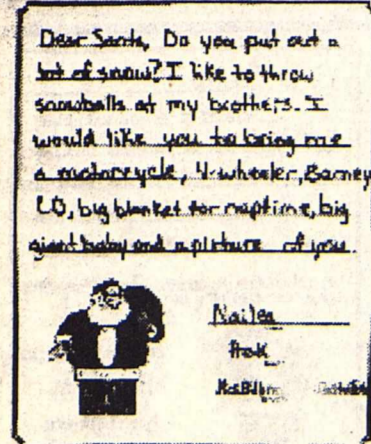 Dear Santa, Do you put out a
lot of snow? I like to throw
snowballs at my brothers. I
would like you to bring me
a motorcycle, 4-wheeler, Barney
CD, big blanket for naptime, big
giant baby and a picture of you.